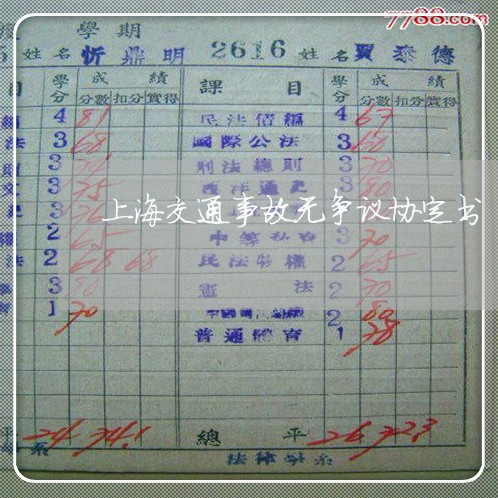 7788.com
度 學 期
5 姓名 忻鼎明 2616 姓名 賈泰德
目 學分 成績 課目 學分 成績
分數 扣分 實得 分數 扣分 實得
4 81 民法債編 4 67
法 3 68 國際公法 3 60
則 3 刑法總則 3 70
3 75 3 80
上海交通事故无争议协定书
2 65 3 70
法 2 68 68 民法物權 2 65
3 80 憲法 2 70
育 1 70 2 80
普通體育 1 78
平 24 74.1 總平 26 72.3
系 法律學系